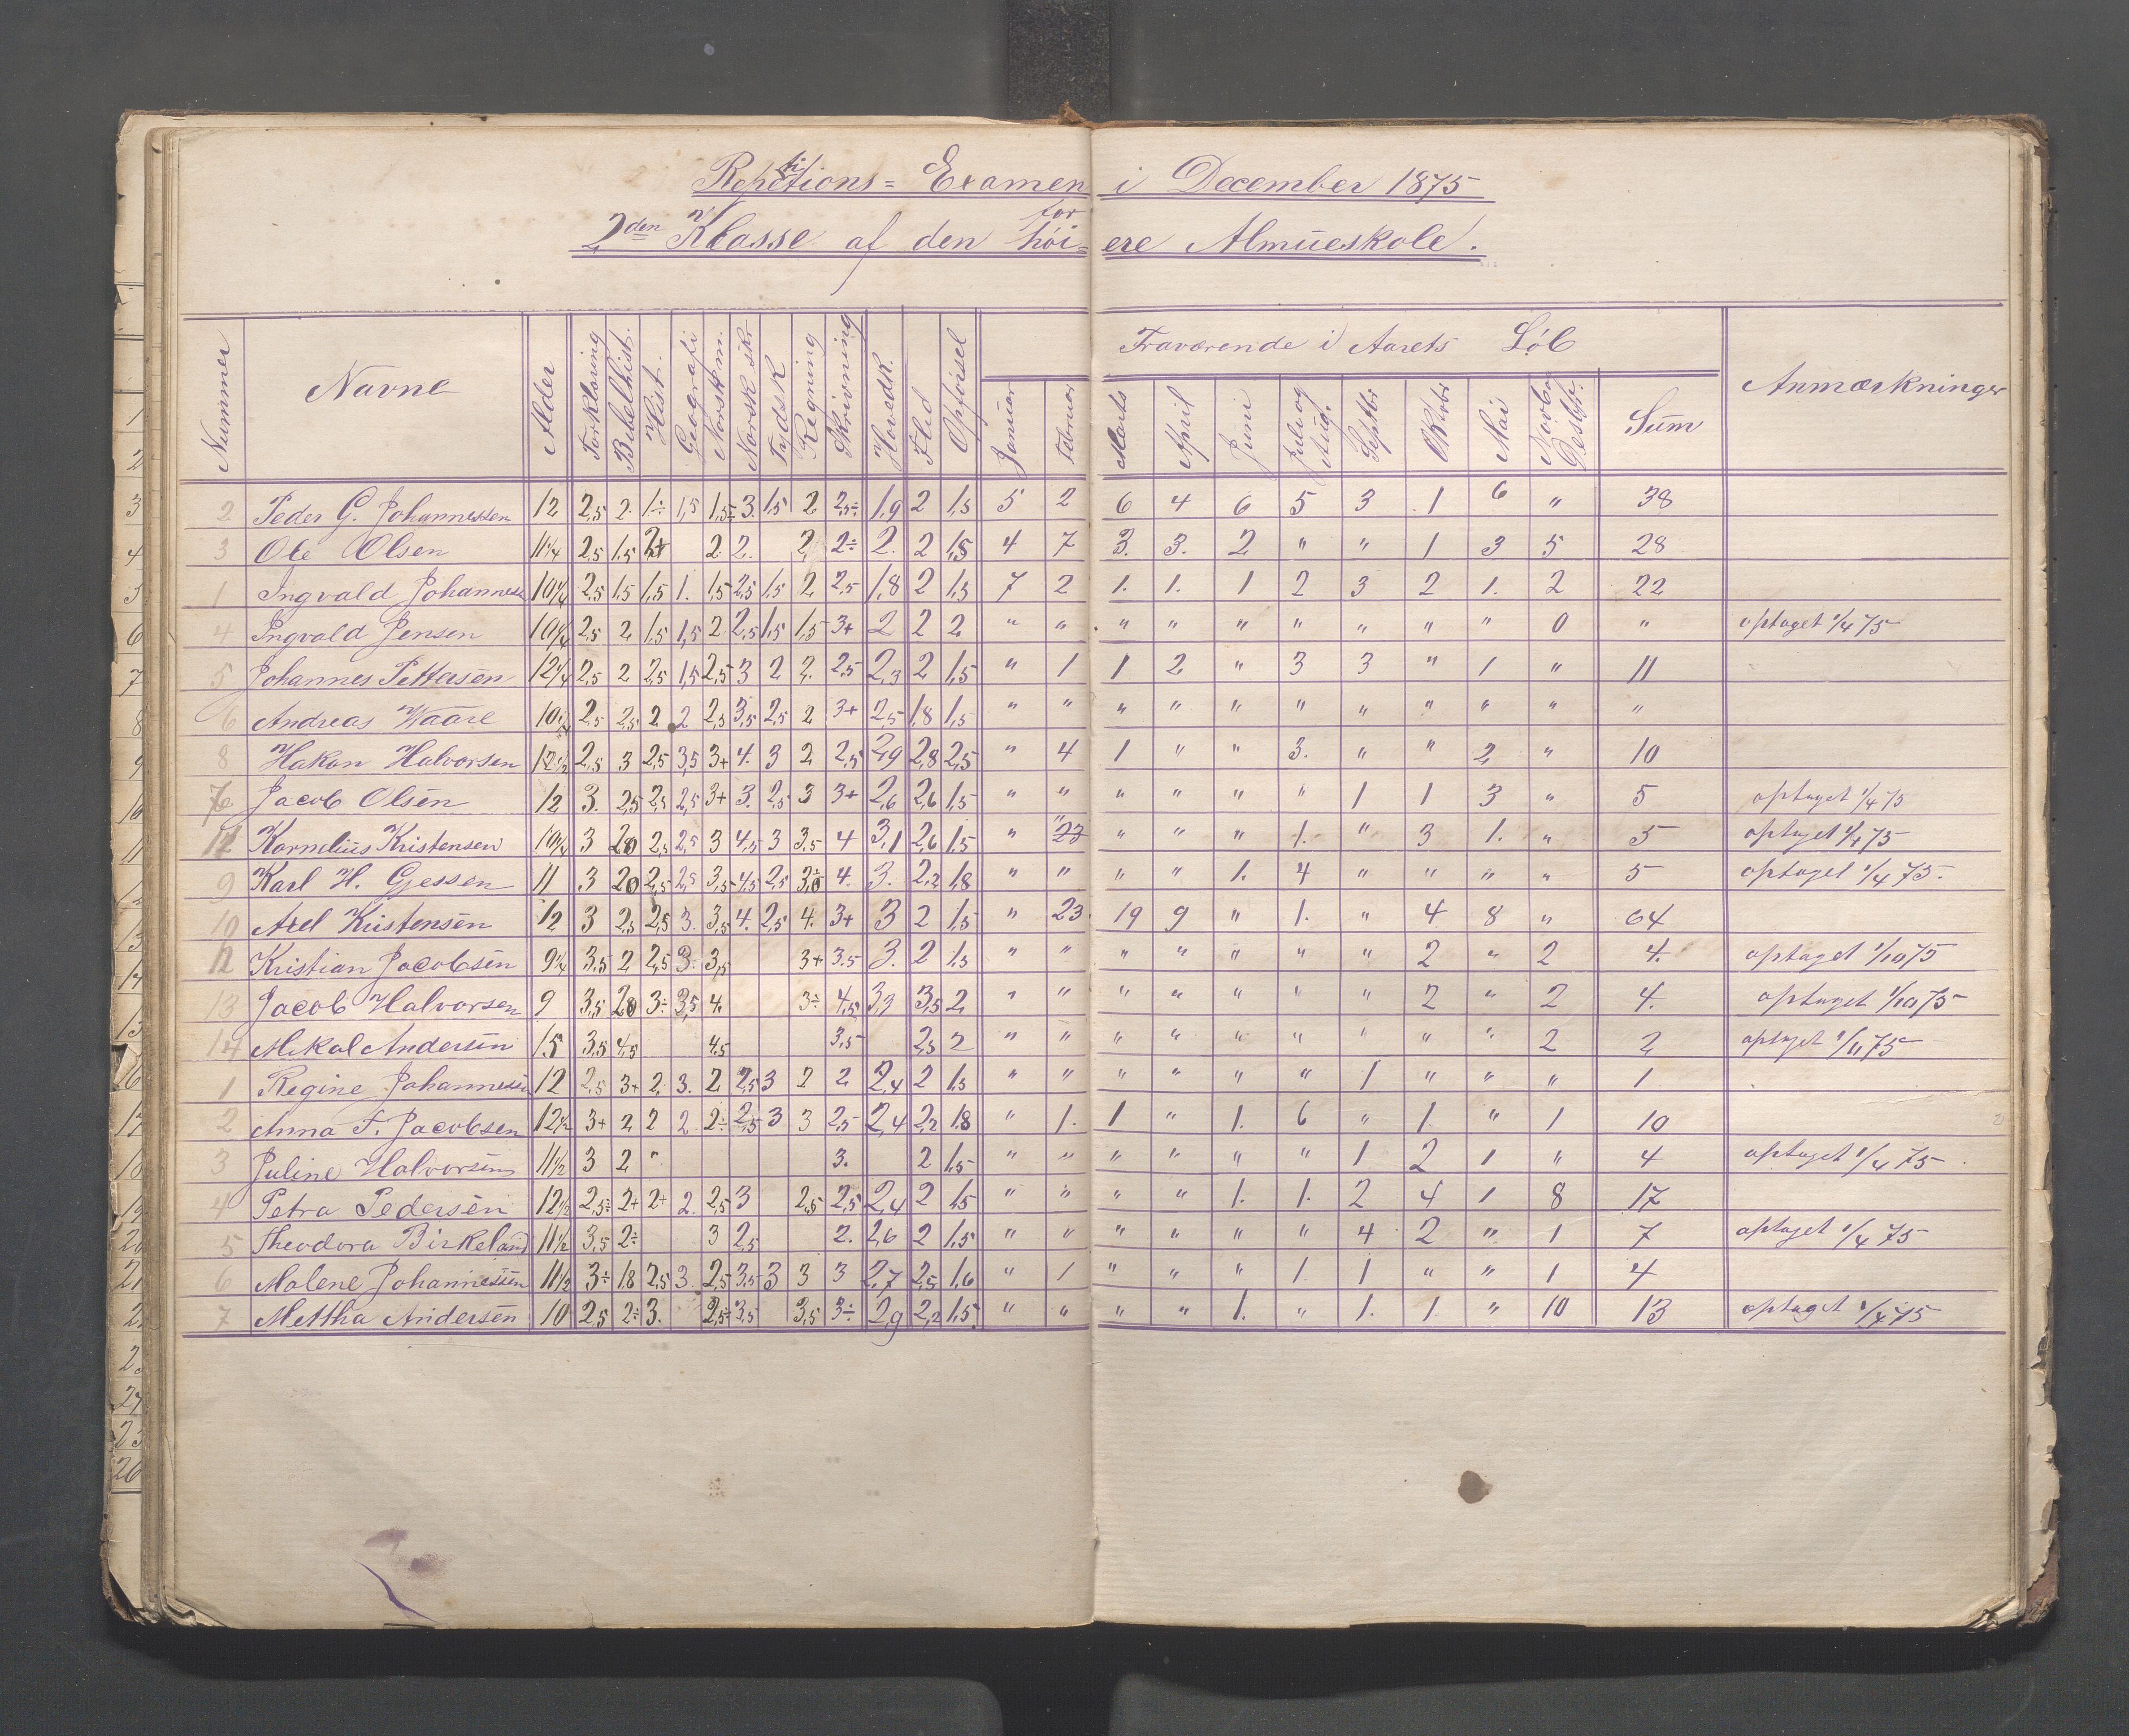 Repetitions= Examen i December 1875
2den Klasse af den høiere Almueskole.
Nummer Navne Alder Forklaring Bibelhist. Hist. Geografi Norsk m. Norsk skr Tydsk Regning Skrivning Hovedk. Flid Opførsel Januar Februar Marts April Juni Juli og Aug. Septbr Oktobr Mai Novbr og Desbr. Sum Anmærkninger
Fraværende i Aarets Løb
2 Peder G. Johannessen 12 2,5 2. 1÷ 1,5 1,5÷ 3. 1,5 2 2,5÷ 1,9 2 1,5 5 2 6 4 6 5 3 1 6 " 38
3 Ole Olsen 11 1/4 2,5 1,5 2+ 2. 2. 2, 2÷ 2. 2 1,5 4 7 3. 3. 2 " " 1 3 5 28
1 Ingvald Johannessen 10 1/4 2,5 1,5 1,5 1. 1,5 2,5 1,5 2 2,5 1,8 2 1,5 7 2 1. 1. 1 2 3 2 1. 2 22
4 Ingvald Jensen 10 1/4 2,5 2 1,5 1,5 2 2,5 1,5 1,5 3+ 2 2 2 " " " " " " " " " 0 " optaget 1/4 75
5 Johannes Pettersen 12 1/4 2,5 2 2,5 1,5 2,5 3 2 2. 2,5 2,3 2 1,5 " 1 1 2 " 3 3 " 1 " 11
6 Andreas Waare 10 1/4 2,5 2,5 2 2 2,5 3,5 2,5 2 3+ 2,5 1,8 1,5 " " " " " " " " " " "
8 Hakon Halvorsen 12 1/2 2,5 3 2,5 3,5 3+ 4. 3 2 2,5 2,9 2,8 2,5 " 4 1 " " 3. " " 2 " 10
7 Jacob Olsen 12 3. 2,5 2,5 2,5 3+ 3. 2,5 3 3+ 2,6 2,6 1,5 " " " " " " 1 1 3 " 5 optaget 1/4 75
11 Kornelius Kristensen 10 1/4 3 20 2,5 2,5 3 4,5 3 3,5 4 3,1 2,6 1,5 " " " " " 1. " 3 1. " 5 optaget 1/4 75
9 Karl H. Gjessen 11 3 20 2,5 2,5 3,5 4,5 2,5 3÷ 4. 3. 2,2 1,8 " " " " 1. 4 " " " " 5 optaget 1/4 75.
10 Axel Kristensen 12 3 2,5 2,5 3. 3,5 4. 2,5 4. 3+ 3 2 1,5 " 23 19 9 " 1. " 4 8 " 64
12 Kristian Jacobsen 9 1/4 3,5 2 2,5 3. 3,5 3+ 3,5 3. 2 1,5 " " " " " " " 2 " 2 4. optaget 1/10 75
13 Jacob Halvorsen 9 3,5 20 3÷ 3,5 4. 3÷ 4,5 3,3 3,5 2 " " " " " " " 2 " 2 4. optaget 1/10 75
14 Mikal Andersen 15 3,5 4,5 4,5 3,5 2,5 2 " " " " " " " " " 2 2 optaget 1/11 75
1 Regine Johannessen 12 2,5 3+ 2. 3. 2 2,5 3 2 2 2,4 2 1,5 " " " " " " 1 " " " 1
2 Anna F. Jacobsen 12 1/2 3+ 2 2 2. 2÷ 2,5 3 3 2,5 2,4 2,2 1,8 " 1. 1 " 1. 6 " 1. " 1 10
3 Juline Halvorsen 11 1/2 3 2 " 3. 2 1,5 " " " " " " 1 2 1 " 4 optaget 1/4 75
4 Petra Pedersen 12 1/2 2,5÷ 2+ 2+ 2. 2,5 3 2,5 2,5 2,4 2 1,5 " " " " 1. 1. 2 4 1 8 17
5 Theodora Birkeland 11 1/2 3,5 2÷ 3 2,5 2. 2,6 2 1,5 " " " " " " 4 2 " 1 7 optaget 1/4 75
6 Malene Johannessen 11 1/2 3÷ 1,8 2,5 3. 2,5 3,5 3 3 3 2,7 2,5 1,6 " 1 " " " 1. 1 " " 1 4
7 Mettha Andersen 10 2,5 2÷ 3. 2,5÷ 3,5 3,5 3÷ 2,9 2,2 1,5 " " " " 1. " 1. 1. " 10 13 optaget 1/4 75